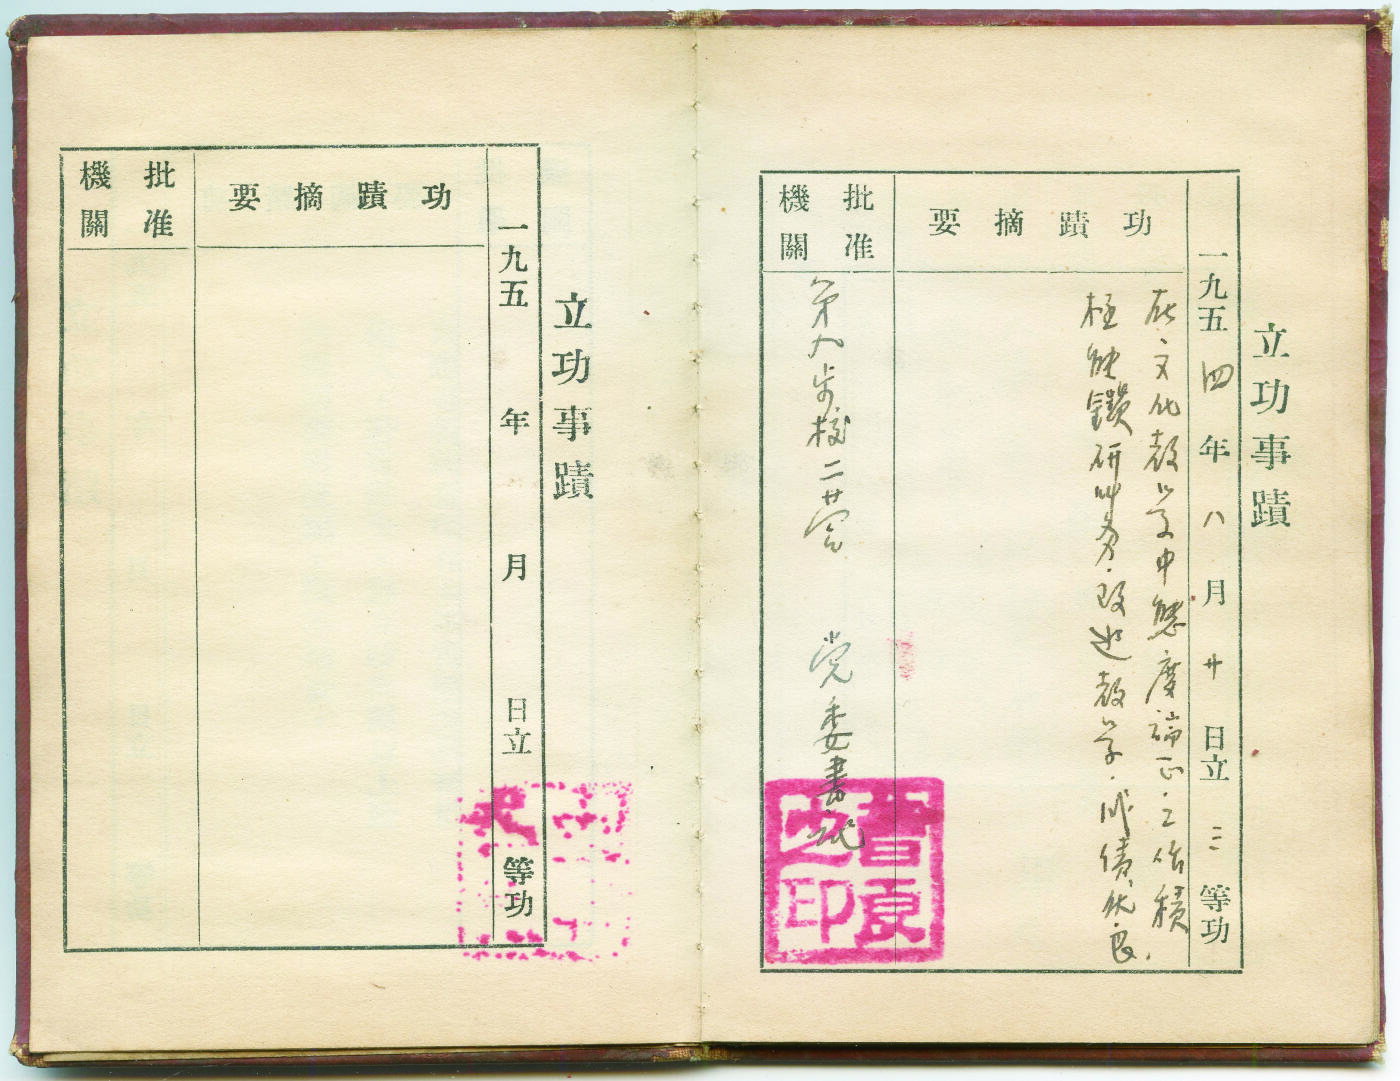 立功事蹟
一九五四年八月廿日立三等功
功蹟摘要
在文化教学中態度端正·工作積
極能鑽研业务·改进教学·成績优良.
批准
機關
第九步校二营 党委書記
之印
立功事蹟
一九五 年 月 日立 等功
功蹟摘要
批准
機關